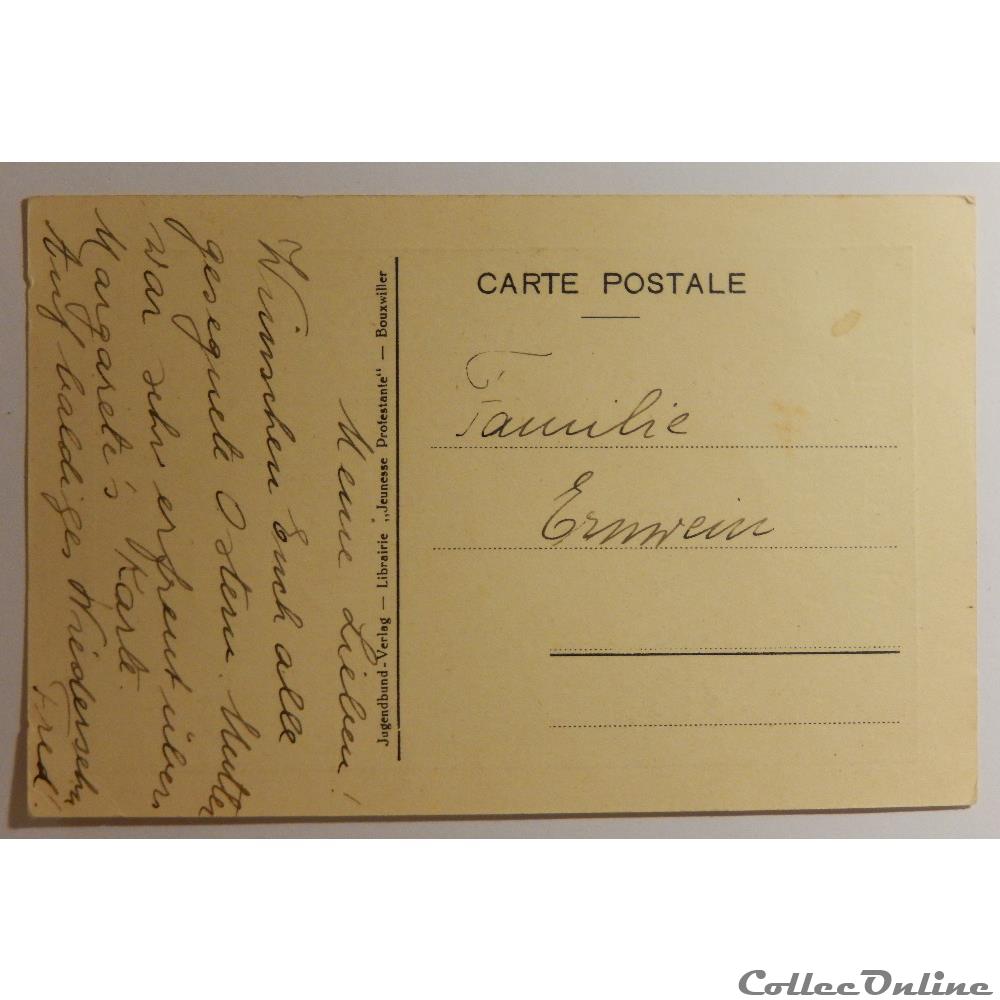 Meine Lieben!
Wünschen Euch alle
gesegnete Ostern. Mutter
war sehr erfreut über
Margarete's Karte.
Auf baldiges Wiedersehn
Fred!
Jugendbund-Verlag — Librairie „Jeunesse Protestante" — Bouxwiller
CARTE POSTALE
Familie
Ernwein
CollecOnline